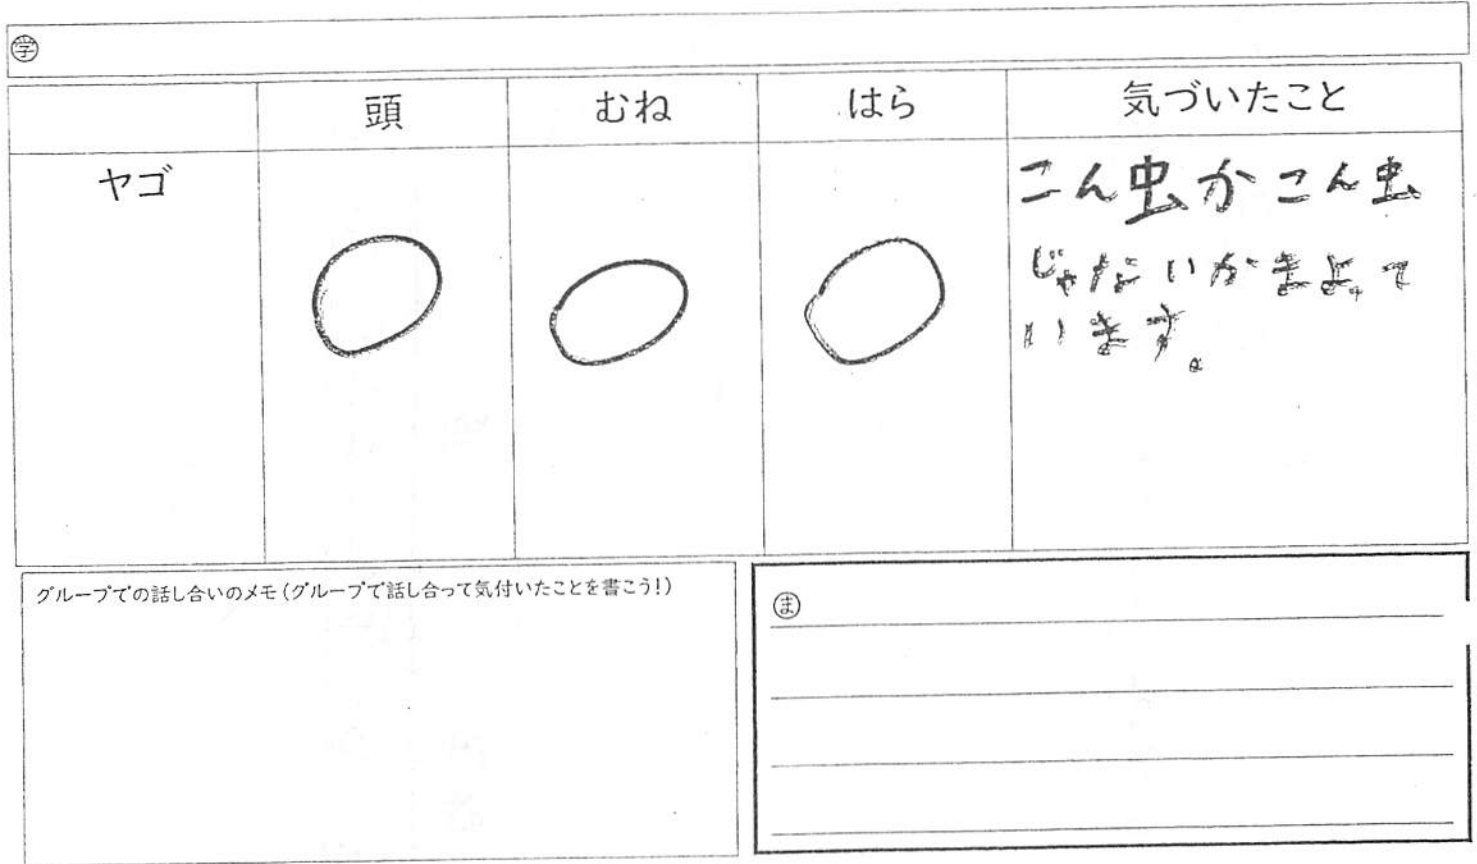 学
頭 むね はら 気づいたこと
ヤゴ
こん虫かこん虫
じゃないかまよって
います。
グループでの話し合いのメモ(グループで話し合って気付いたことを書こう!)
ま